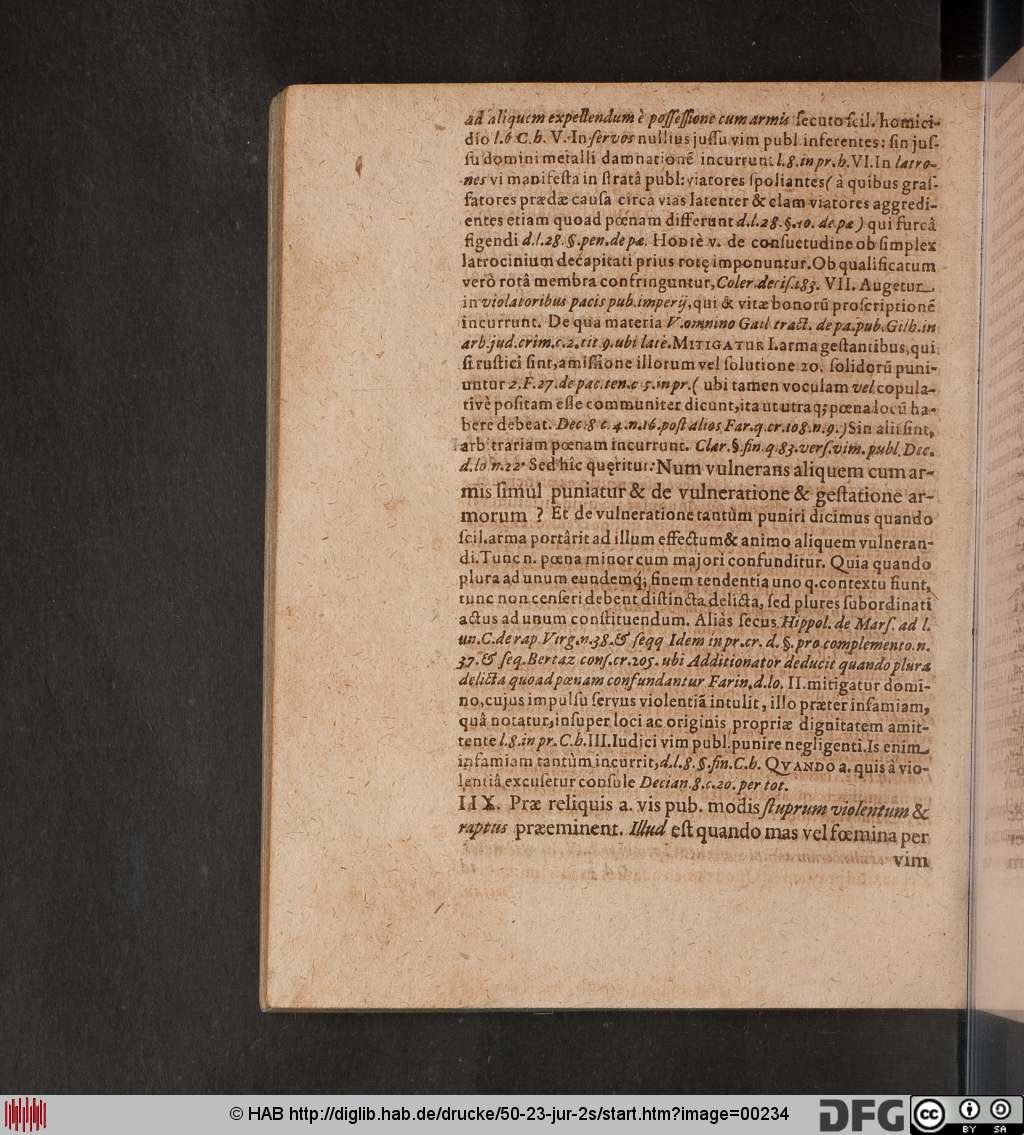 ad aliquem expellendum è poſſeſſione cum armis ſecuto ſcil. homici-
dio l.6 C.h. V. In ſervos nullius juſſu vim publ inferentes: ſin juſ-
ſu domini metalli damnationẽ incurrunt l.8.in pr.h. VI. In latro-
nes vi manifeſta in ſtratâ publ: viatores ſpoliantes ( à quibus graſ-
ſatores prædæ cauſa circa vias latenter & clam viatores aggredi-
entes etiam quoad pœnam differunt d.l.28.§.10. de pæ ) qui furcâ
figendi d.l.28.§.pen.de pæ. HODIÈ v. de conſuetudine ob ſimplex
latrocinium decapitati prius rotę imponuntur. Ob qualificatum
verò rotâ membra confringuntur, Coler.deciſ.183. VII. Augetur
in violatoribus pacis pub.imperij, qui & vitæ bonorũ proſcriptionẽ
incurrunt. De qua materia V.omnino Gail tract. de pa.pub.Gilh.in
arb.jud.crim.c.2.tit 9.ubi latè. MITIGATUR I. arma geſtantibus, qui
ſi ruſtici ſint, amiſſione illorum vel ſolutione 20. ſolidorũ puni-
untur 2.F.27.de pac.ten.c 5.in pr.( ubi tamen voculam vel copula-
tivè poſitam eſſe communiter dicunt, ita ut utraq; pœna locũ ha-
bere debeat. Dec.8 c.4.n.16.poſt alios Far.q.cr.108.n.9.) Sin alii ſint,
arbitrariam pœnam incurrunt. Clar.§.fin.q.83.verſ.vim.publ Dec.
d.lo n.22. Sed hîc quęritur: Num vulnerans aliquem cum ar-
mis ſimul puniatur & de vulneratione & geſtatione ar-
morum ? Et de vulneratione tantùm puniri dicimus quando
ſcil. arma portârit ad illum effectum & animo aliquem vulneran-
di. Tunc n. pœna minor cum majori confunditur. Quia quando
plura ad unum eundemq́; finem tendentia uno q. contextu fiunt,
tunc non cenſeri debent diſtincta delicta, ſed plures ſubordinati
actus ad unum conſtituendum. Aliàs ſecus Hippol. de Marſ. ad l.
un.C.de rap.Virg.n.38.& ſeqq Idem in pr.cr. d.§.pro complemento.n.
37.& ſeq.Bertaz conſ.cr.205. ubi Additionator deducit quando plura
delicta quoad pœnam confundantur Farin.d.lo. II. mitigatur domi-
no, cujus impulſu ſervus violentiã intulit, illo præter infamiam,
quâ notatur, inſuper loci ac originis propriæ dignitatem amit-
tente l.8.in pr.C.h. III. Iudici vim publ. punire negligenti. Is enim
infamiam tantùm incurrit, d.l.8.§.fin.C.h. QVANDO a. quis à vio-
lentiâ excuſetur conſule Decian.8.c.20. per tot.
IIX. Præ reliquis a. vis pub. modis ſtuprum violentum &
raptus præeminent. Illud eſt quando mas vel fœmina per
vim
© HAB http://diglib.hab.de/drucke/50-23-jur-2s/start.htm?image=00234
DFG cc BY SA